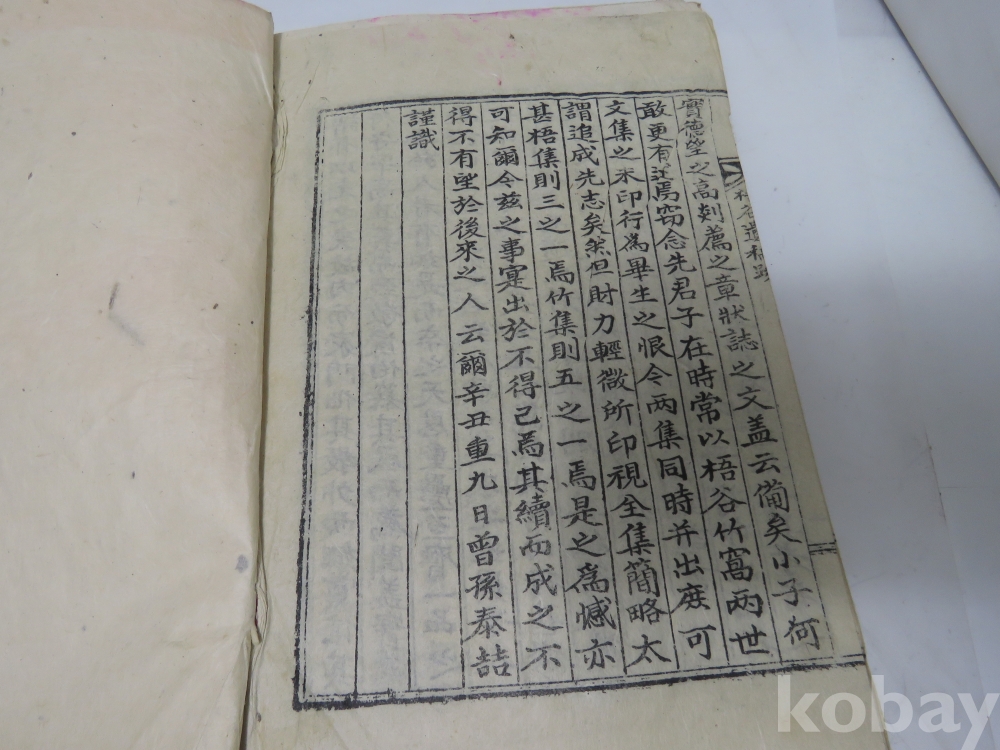 實德學之高剡薦之章狀誌之文盖云備矣小子何
敢更有述焉窃念先君子在時常以梧谷竹窩兩世
文集之未印行爲畢生之恨今兩集同時并出庶可
謂追成先志矣然但財力輕微所印視全集簡略太
甚梧集則三之一焉竹集則五之一焉是之爲憾亦
可知爾今兹之事寔出於不得已焉其續而成之不
得不有望於後來之人云爾辛丑重九日曾孫泰喆
謹識
kobay